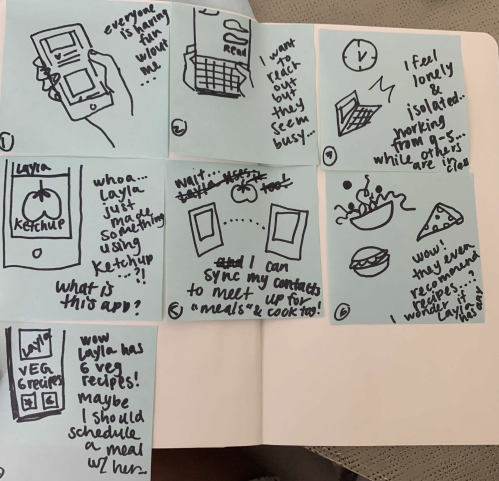 everyone
is having
fun
w/out
me...
1
Read
I want
to
reach
out
but
they
seem
busy...
2
I feel
lonely
&
isolated..
working
from 9-5...
while others
are in class
Layla
KetchUp
whoa...
Layla
just
made
something
using
Ketchup
...?!
what is
this app?
wait...
too!
I can
sync my contacts
to meet up for
"meals" & cook too!
wow!
they even
recommend
recipes...?
I wonder if
Layla
has any
6
Layla
VEG
6 recipes
wow
Layla has
6 veg
recipes!
maybe
I should
schedule
a meal
w/ her...